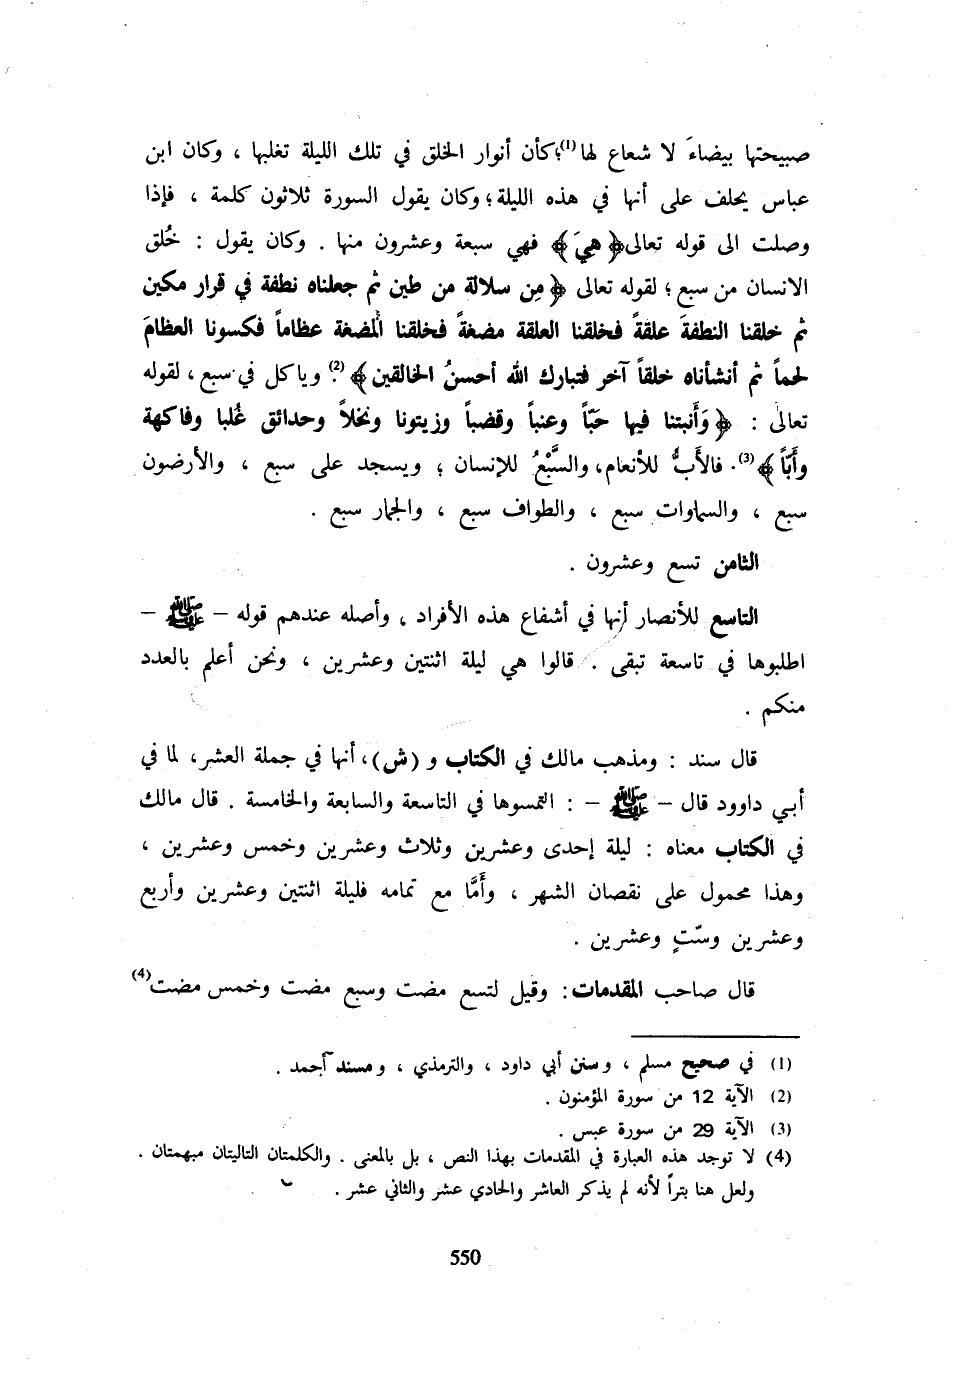 صبيحتها بيضاءَ لا شعاع لها(1)؛ كأن أنوار الخلق في تلك الليلة تغلبها ، وكان ابن
عباس يحلف على أنها في هذه الليلة ؛ وكان يقول السورة ثلاثون كلمة ، فإذا
وصلت الى قوله تعالى ﴿ هيَ ﴾ فهي سبعة وعشرون منها . وكان يقول : خُلق
الانسان من سبع ؛ لقوله تعالى ﴿ مِن سلالة من طين ثم جعلناه نطفة في قرار مكين
ثم خلقنا النطفةَ علقةً فخلقنا العلقة مضغةً فخلقنا المضغة عظاماً فكسونا العظامَ
لحماً ثم أنشأناه خلقاً آخر فتبارك الله أحسنُ الخالقين ﴾(2). وياكل في سبع ، لقوله
تعالى : ﴿ وَأنبتنا فيها حَبّاً وعنباً وقضباً وزيتونا ونخلاً وحدائق غُلبا وفاكهة
وأبّاً ﴾(3). فالأَبُّ للأنعام ، والسَّبْعُ للإنسان ؛ ويسجد على سبع ، والأرضون
سبع ، والسماوات سبع ، والطواف سبع ، والجمار سبع .
الثامن تسع وعشرون .
التاسع للأنصار أنها في أشفاع هذه الأفراد ، وأصله عندهم قوله – ﷺ –
اطلبوها في تاسعة تبقى . قالوا هي ليلة اثنتين وعشرين ، ونحن أعلم بالعدد
منكم .
قال سند : ومذهب مالك في الكتاب و (ش) ، أنها في جملة العشر ، لما في
أبـي داوود قال – ﷺ – : التمسوها في التاسعة والسابعة والخامسة . قال مالك
في الكتاب معناه : ليلة إحدى وعشرين وثلاث وعشرين وخمس وعشرين ،
وهذا محمول على نقصان الشهر ، وأَمَّا مع تمامه فليلة اثنتين وعشرين وأربع
وعشرين وسّتٍ وعشرين .
قال صاحب المقدمات : وقيل لتسع مضت وسبع مضت وخمس مضت(4)
(1) في صحيح مسلم ، وسنن أبي داود ، والترمذي ، ومسند أحمد .
(2) الآية 12 من سورة المؤمنون .
(3) الآية 29 من سورة عبس .
(4) لا توجد هذه العبارة في المقدمات بهذا النص ، بل بالمعنى . والكلمتان التاليتان مبهمتان .
ولعل هنا بتراً لأنه لم يذكر العاشر والحادي عشر والثاني عشر .
550